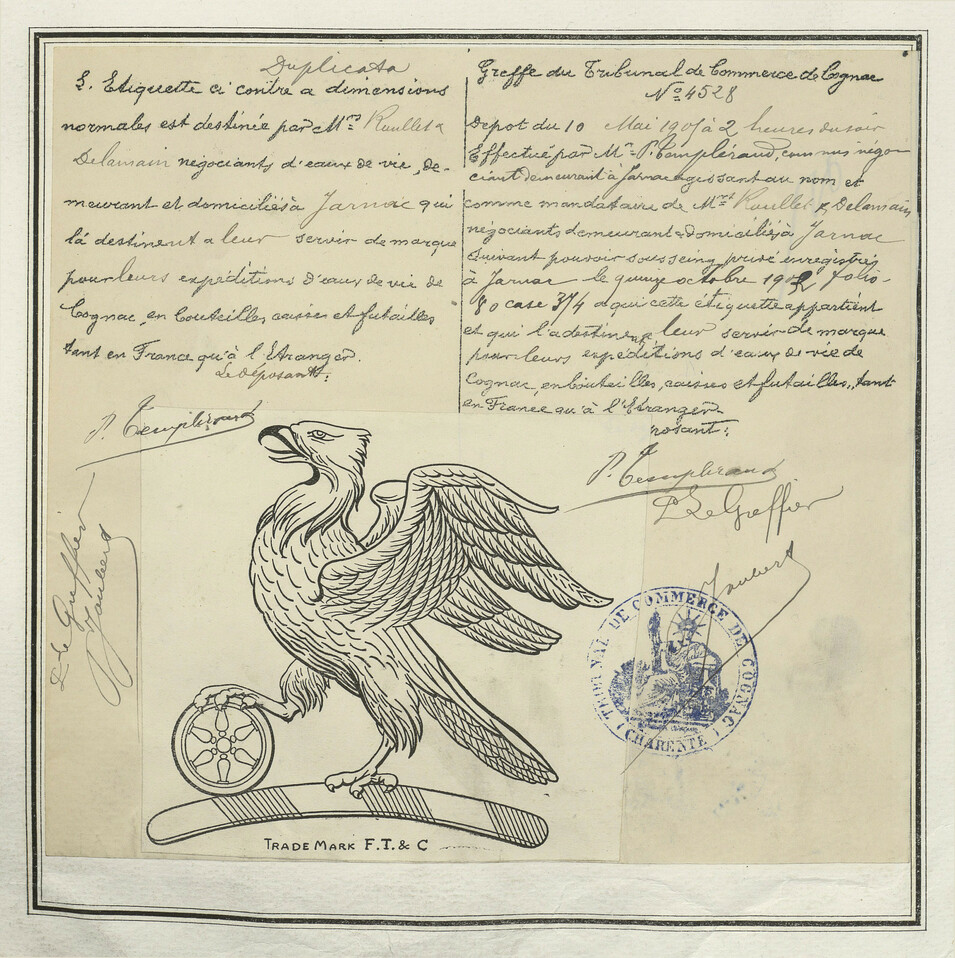 Duplicata
L'Etiquette ci contre a dimensions
normales est destinée par Mrs Roullet &
Delamain négociants d'eaux de vie, de-
meurant et domiciliés à Jarnac qui
la destinent a leur servir de marque
pour leurs expéditions d'eaux de vie de
Cognac, en bouteilles caisses et futailles
tant en France qu'à l'Etranger.
Le déposant:
P. Templéraud
P Le Greffier
Joubert
Greffe du Tribunal de Commerce de Cognac
No 4528
Depot du 10 Mai 190 à 2 heures du soir
Effectué par Mr P. Templéraud, commis négo-
ciant demeurant à Jarnac agissant au nom et
comme mandataire de Mrs Roullet & Delamain
négociants demeurant & domiciliés à Jarnac
suivant pouvoir sous seing privé enregistré
à Jarnac le quinze octobre 1902, folio
80 case 374 à qui cette étiquette appartient
et qui l'a destinent a leur servir de marque
pour leurs expéditions d'eaux de vie de
Cognac, en bouteilles, caisses et futailles, tant
en France qu'à l'Etranger.
posant:
P. Templéraud
P Le Greffier
Joubert
TRIBUNAL DE COMMERCE DE COGNAC
(CHARENTE)
TRADE MARK F.T. & C